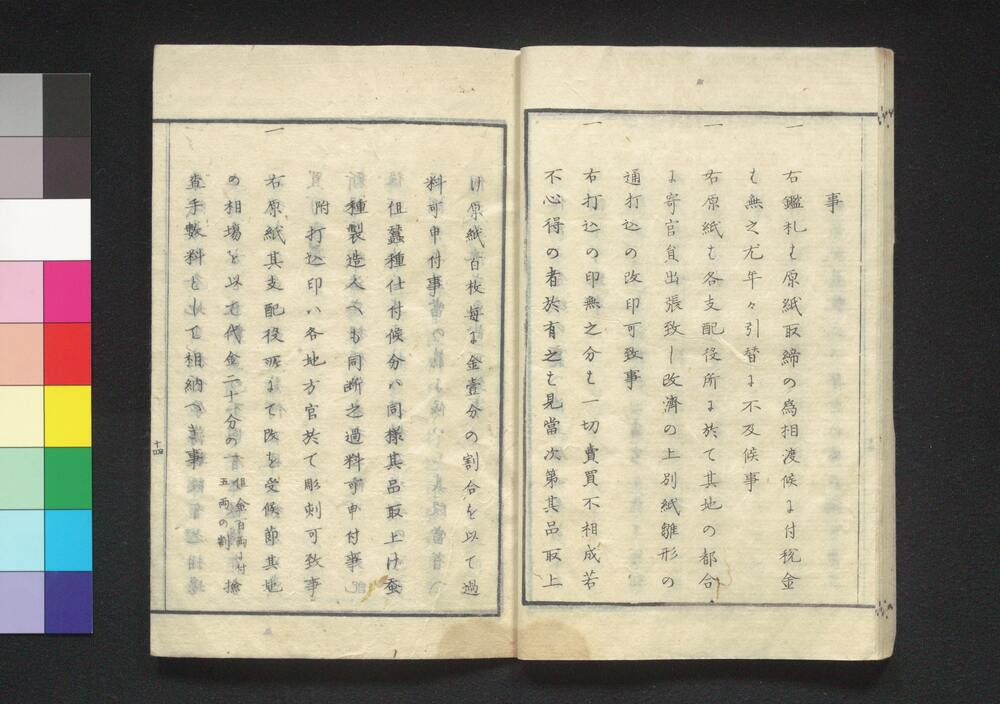 事
一 右鑑札も原紙取締の為相渡候に付税金
も無之尤年々引替に不及候事
一 右原紙も各支配役所に於て其地の都合
に寄官員出張致し改済の上別紙雛形の
通打込の改印可致事
一 右打込の印無之分も一切賣買不相成若
不心得の者於有之も見當次第其品取上
け原紙百枚毎に金壹分の割合を以て過
料可申付事
但蠶種仕付候分ハ同様其品取上け蚕
種製造人へも同断之過料可申付事
附打込印ハ各地方官於て彫刻可致事
一 右原紙其支配役所にて改を受候節其地
の相場を以て代金二十分の一 但金百両に付五両の割 撿
査手數料として相納へき事
十四